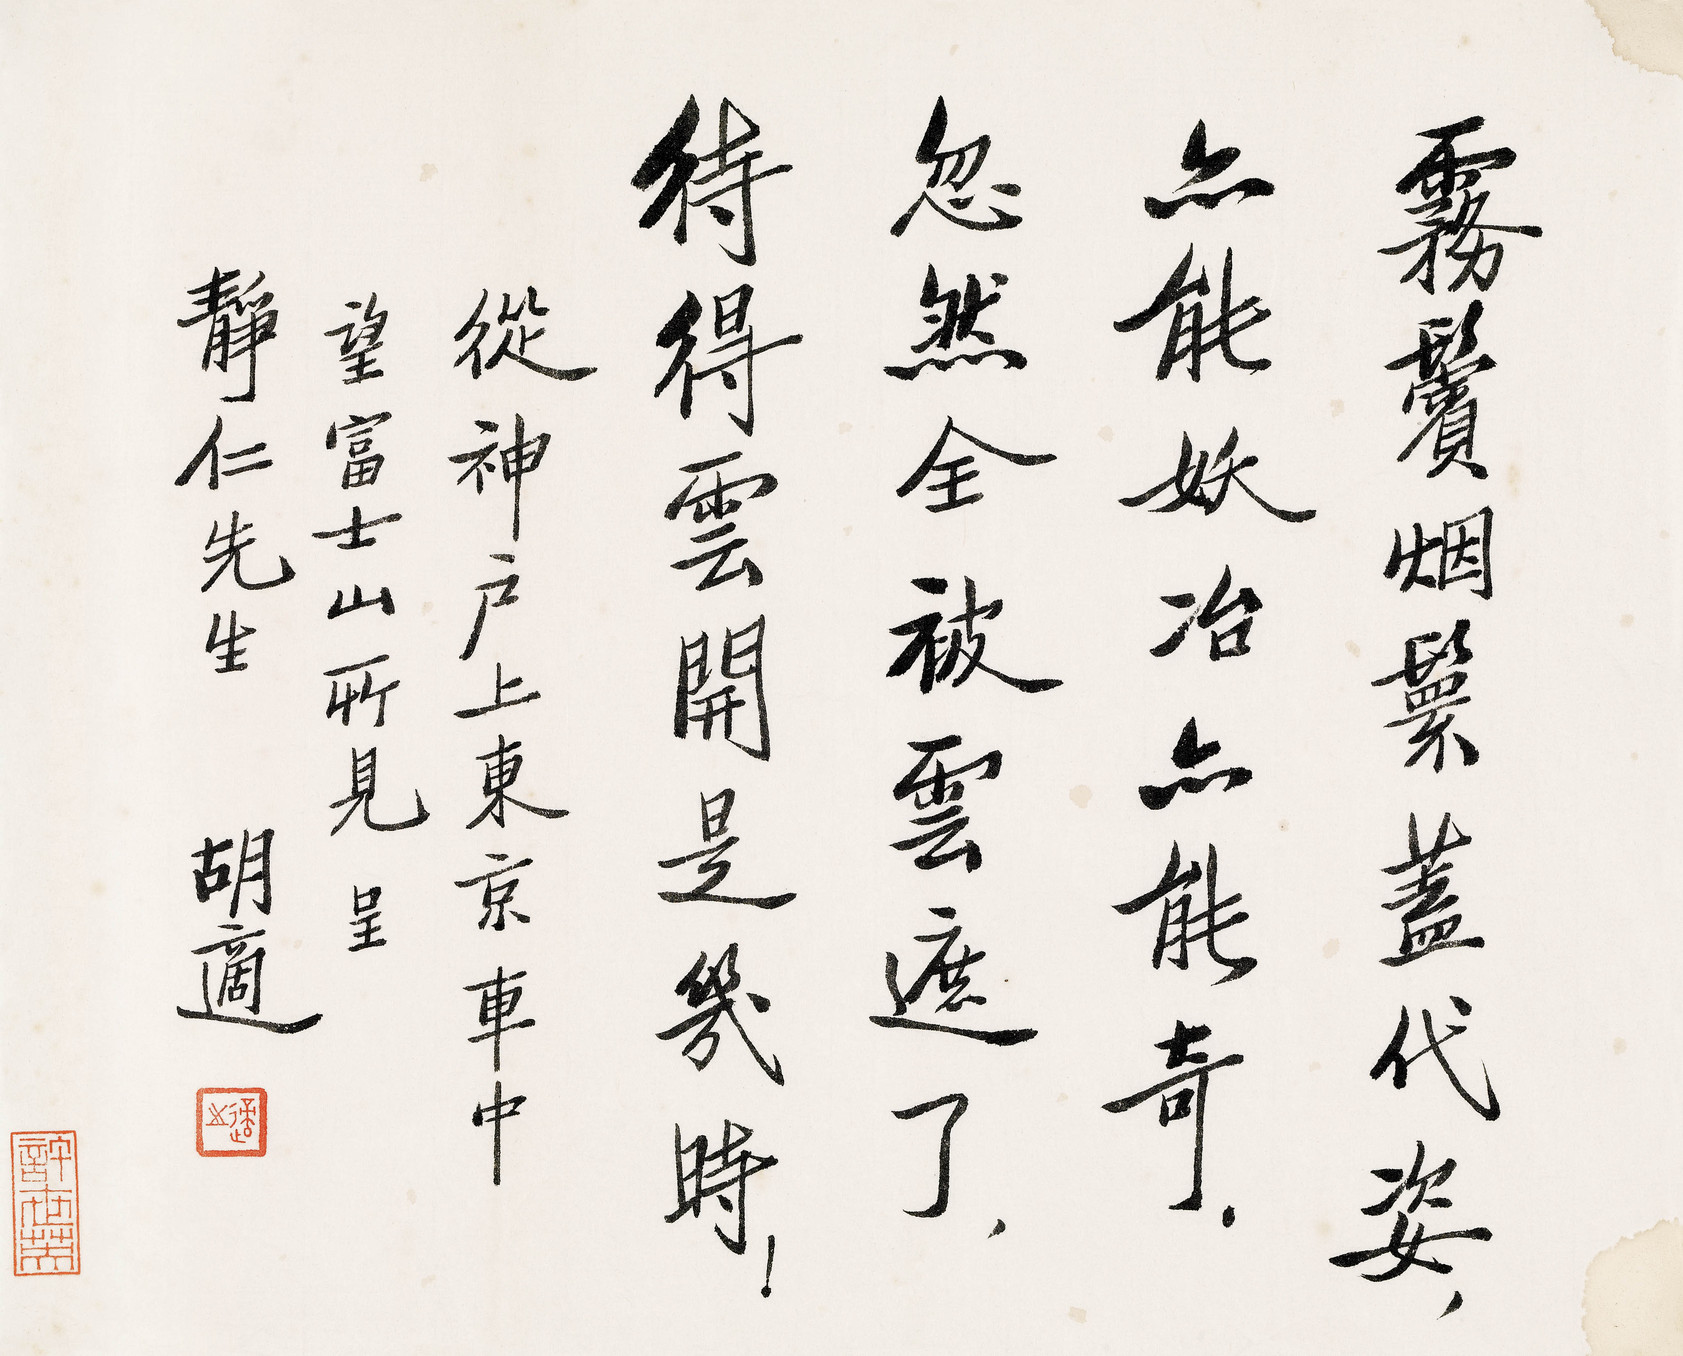 霧鬢烟鬟蓋代姿，
亦能妖冶亦能奇．
忽然全被雲遮了，
待得雲開是幾時！
從神户上東京車中
望富士山所見 呈
靜仁先生 胡適
適之
許世英